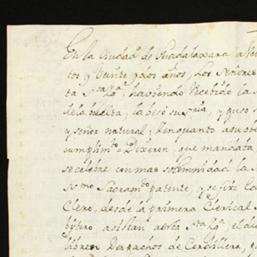 En la Ciudad de Guadalaxara a
tos, y Veinte y dos años, Los Señores
ta Sta Ygª, haviendo Recibido la
de la buelta, la besó su Sria, y puso s
y señor natural; En quanto a su obe
cumplimto Dixeron, que mandava
se celebre con mas solemnidad la
Ssmo Sacramto patente, y se fixe
Clero, desde la primera Clerical
bitero asistan a esta Sta Ygª, el di